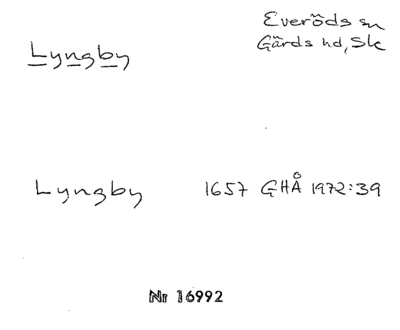 Everöds sn
Gärds hd, Sk
Lyngby
Lyngby 1657 GHÅ 1972:39
Nr 16992